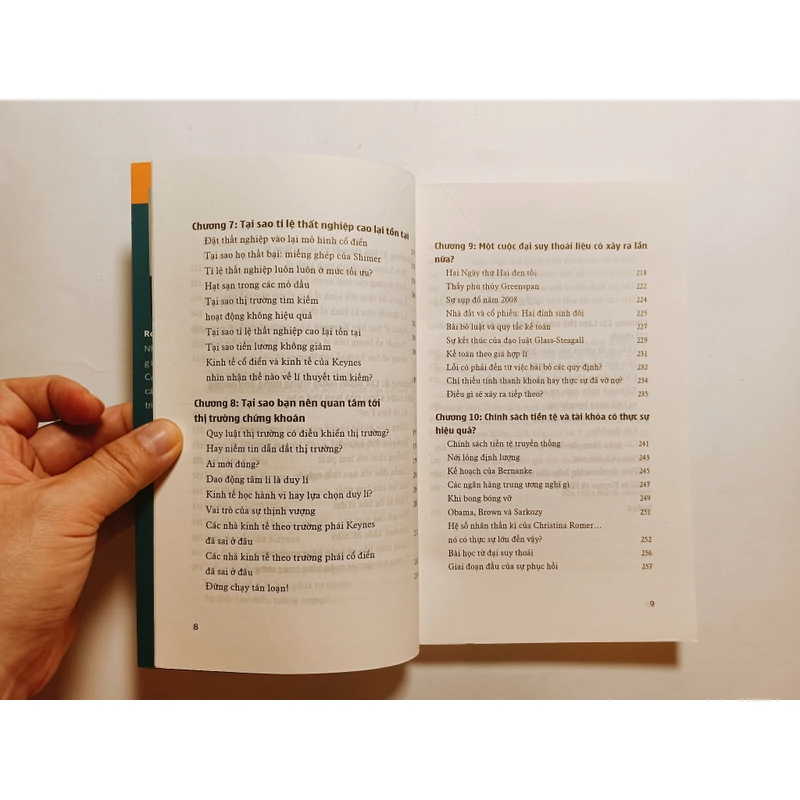 Chương 7: Tại sao tỉ lệ thất nghiệp cao lại tồn tại
Đặt thất nghiệp vào lại mô hình cổ điển
Tại sao họ thất bại: miếng ghép của Shimer
Tỉ lệ thất nghiệp luôn luôn ở mức tối ưu?
Hạt sạn trong các mỏ dầu
Tại sao thị trường tìm kiếm
hoạt động không hiệu quả
Tại sao tỉ lệ thất nghiệp cao lại tồn tại
Tại sao tiền lương không giảm
Kinh tế cổ điển và kinh tế của Keynes
nhìn nhận thế nào về lí thuyết tìm kiếm?
Chương 8: Tại sao bạn nên quan tâm tới
thị trường chứng khoán
Quy luật thị trường có điều khiển thị trường?
Hay niềm tin dẫn dắt thị trường?
Ai mới đúng?
Dao động tâm lí là duy lí
Kinh tế học hành vi hay lựa chọn duy lí?
Vai trò của sự thịnh vượng
Các nhà kinh tế theo trường phái Keynes
đã sai ở đâu
Các nhà kinh tế theo trường phái cổ điển
đã sai ở đâu
Đừng chạy tán loạn!
8
Chương 9: Một cuộc đại suy thoái liệu có xảy ra lần
nữa?
Hai Ngày thứ Hai đen tối 218
Thầy phù thủy Greenspan 222
Sự sụp đổ năm 2008 224
Nhà đất và cổ phiếu: Hai đỉnh sinh đôi 225
Bãi bỏ luật và quy tắc kế toán 227
Sự kết thúc của đạo luật Glass-Steagall 229
Kế toán theo giá hợp lí 231
Lỗi có phải đến từ việc bãi bỏ các quy định? 232
Chỉ thiếu tính thanh khoản hay thực sự đã vỡ nợ? 234
Điều gì sẽ xảy ra tiếp theo? 235
Chương 10: Chính sách tiền tệ và tài khóa có thực sự
hiệu quả?
Chính sách tiền tệ truyền thống 241
Nới lỏng định lượng 243
Kế hoạch của Bernanke 245
Các ngân hàng trung ương nghĩ gì 247
Khi bong bóng vỡ 249
Obama, Brown và Sarkozy 251
Hệ số nhân thần kì của Christina Romer...
nó có thực sự lớn đến vậy? 252
Bài học từ đại suy thoái 256
Giai đoạn đầu của sự phục hồi 257
9